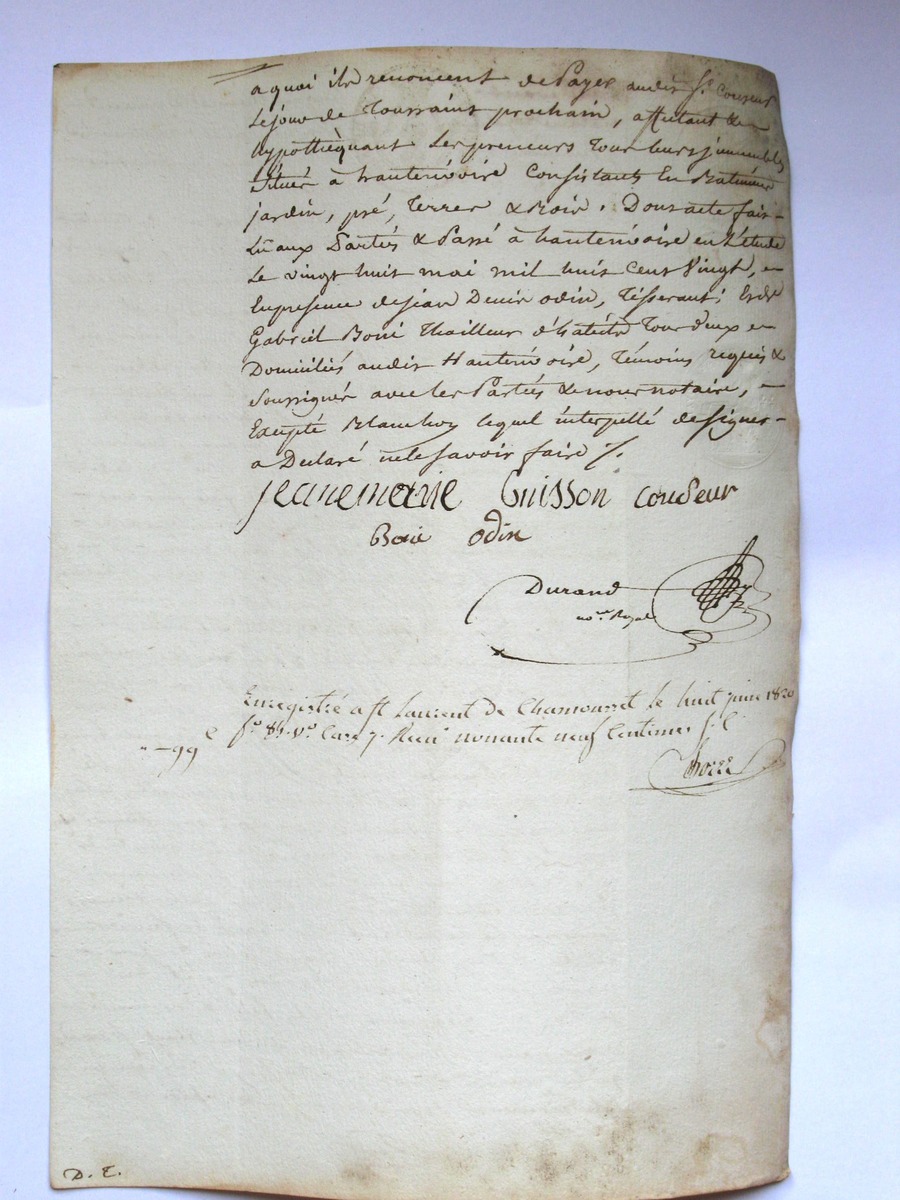 a quoi ils renoncent de Payer audit Sr. Couseur
Le jour de Toussaint prochain, affectant &
hypothèquant Les preneurs Tous leurs immeubles
Situés à hauterivoire Consistants En Batiments
jardin, pré, Terres & Bois. Dont acte fait
Lu aux Parties & Passé à hauterivoire en L'étude
Le vingt huit mai mil huit Cent Vingt, en
la presence de jean Denis odin, Tisserant; Et de
Gabriel Boni Thailleur d'habits Tous deux
Domiciliés audit Hauterivoire, Témoins requis &
Soussignés avec les Parties & nous notaire,
Excepté Blanchon lequel interpellé de Signer
a Declaré ne le savoir faire /.
jeanemarie Guisson couseur
Boni odin
Durand
no.re Royal
Enregistré a St Laurent de Chamousset le huit juin 1820
fo. 84. Vo. Case 7. Recu nonante neuf Centimes
"-99c
D. T.